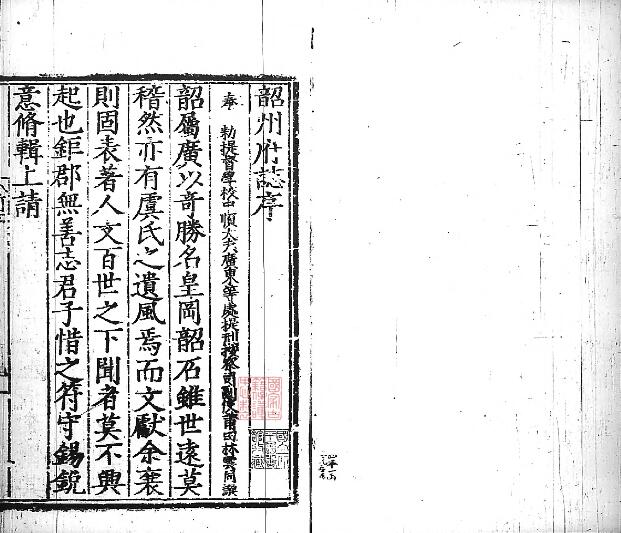 韶州府誌序
奉 勅提督學校中順大夫廣東等處提刑按察司副使莆田林雲同譔
韶屬廣以奇勝名皇岡韶石雖世遠莫
稽然亦有虞氏之遺風焉而文獻余襄
則固表著人文百世之下聞者莫不興
起也鉅郡無善志君子惜之符守錫銳
意脩輯上請